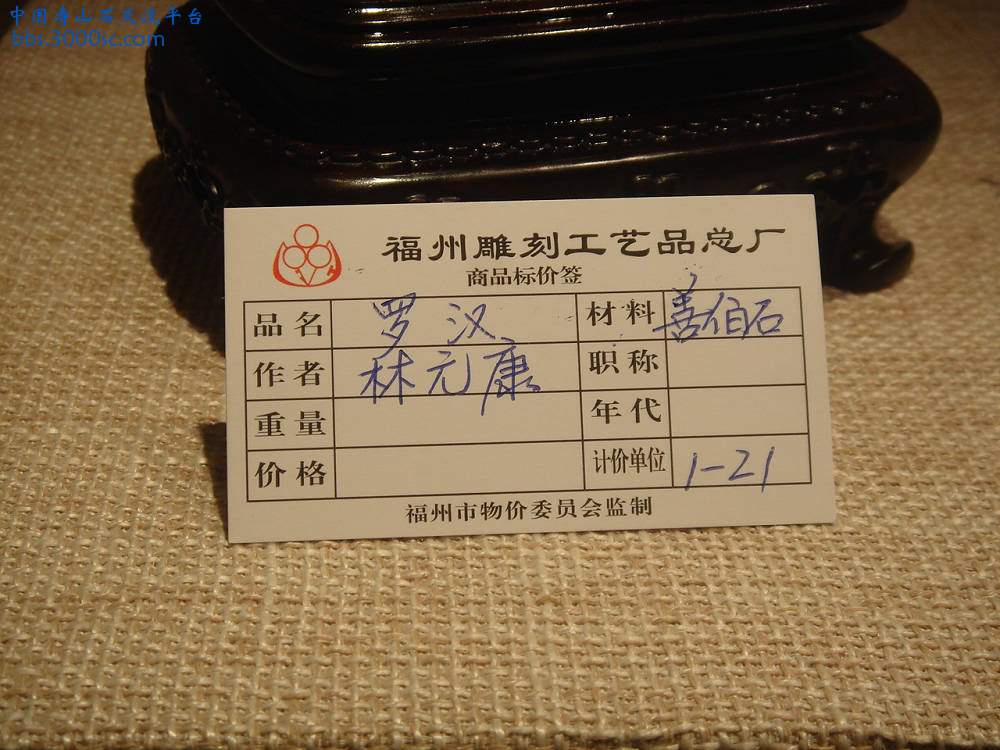 中国寿山石交流平台
bbs.3000sc.com
福州雕刻工艺品总厂
商品标价签
品名 罗汉 材料 善伯石
作者 林元康 职称
重量 年代
价格 计价单位 1-21
福州市物价委员会监制